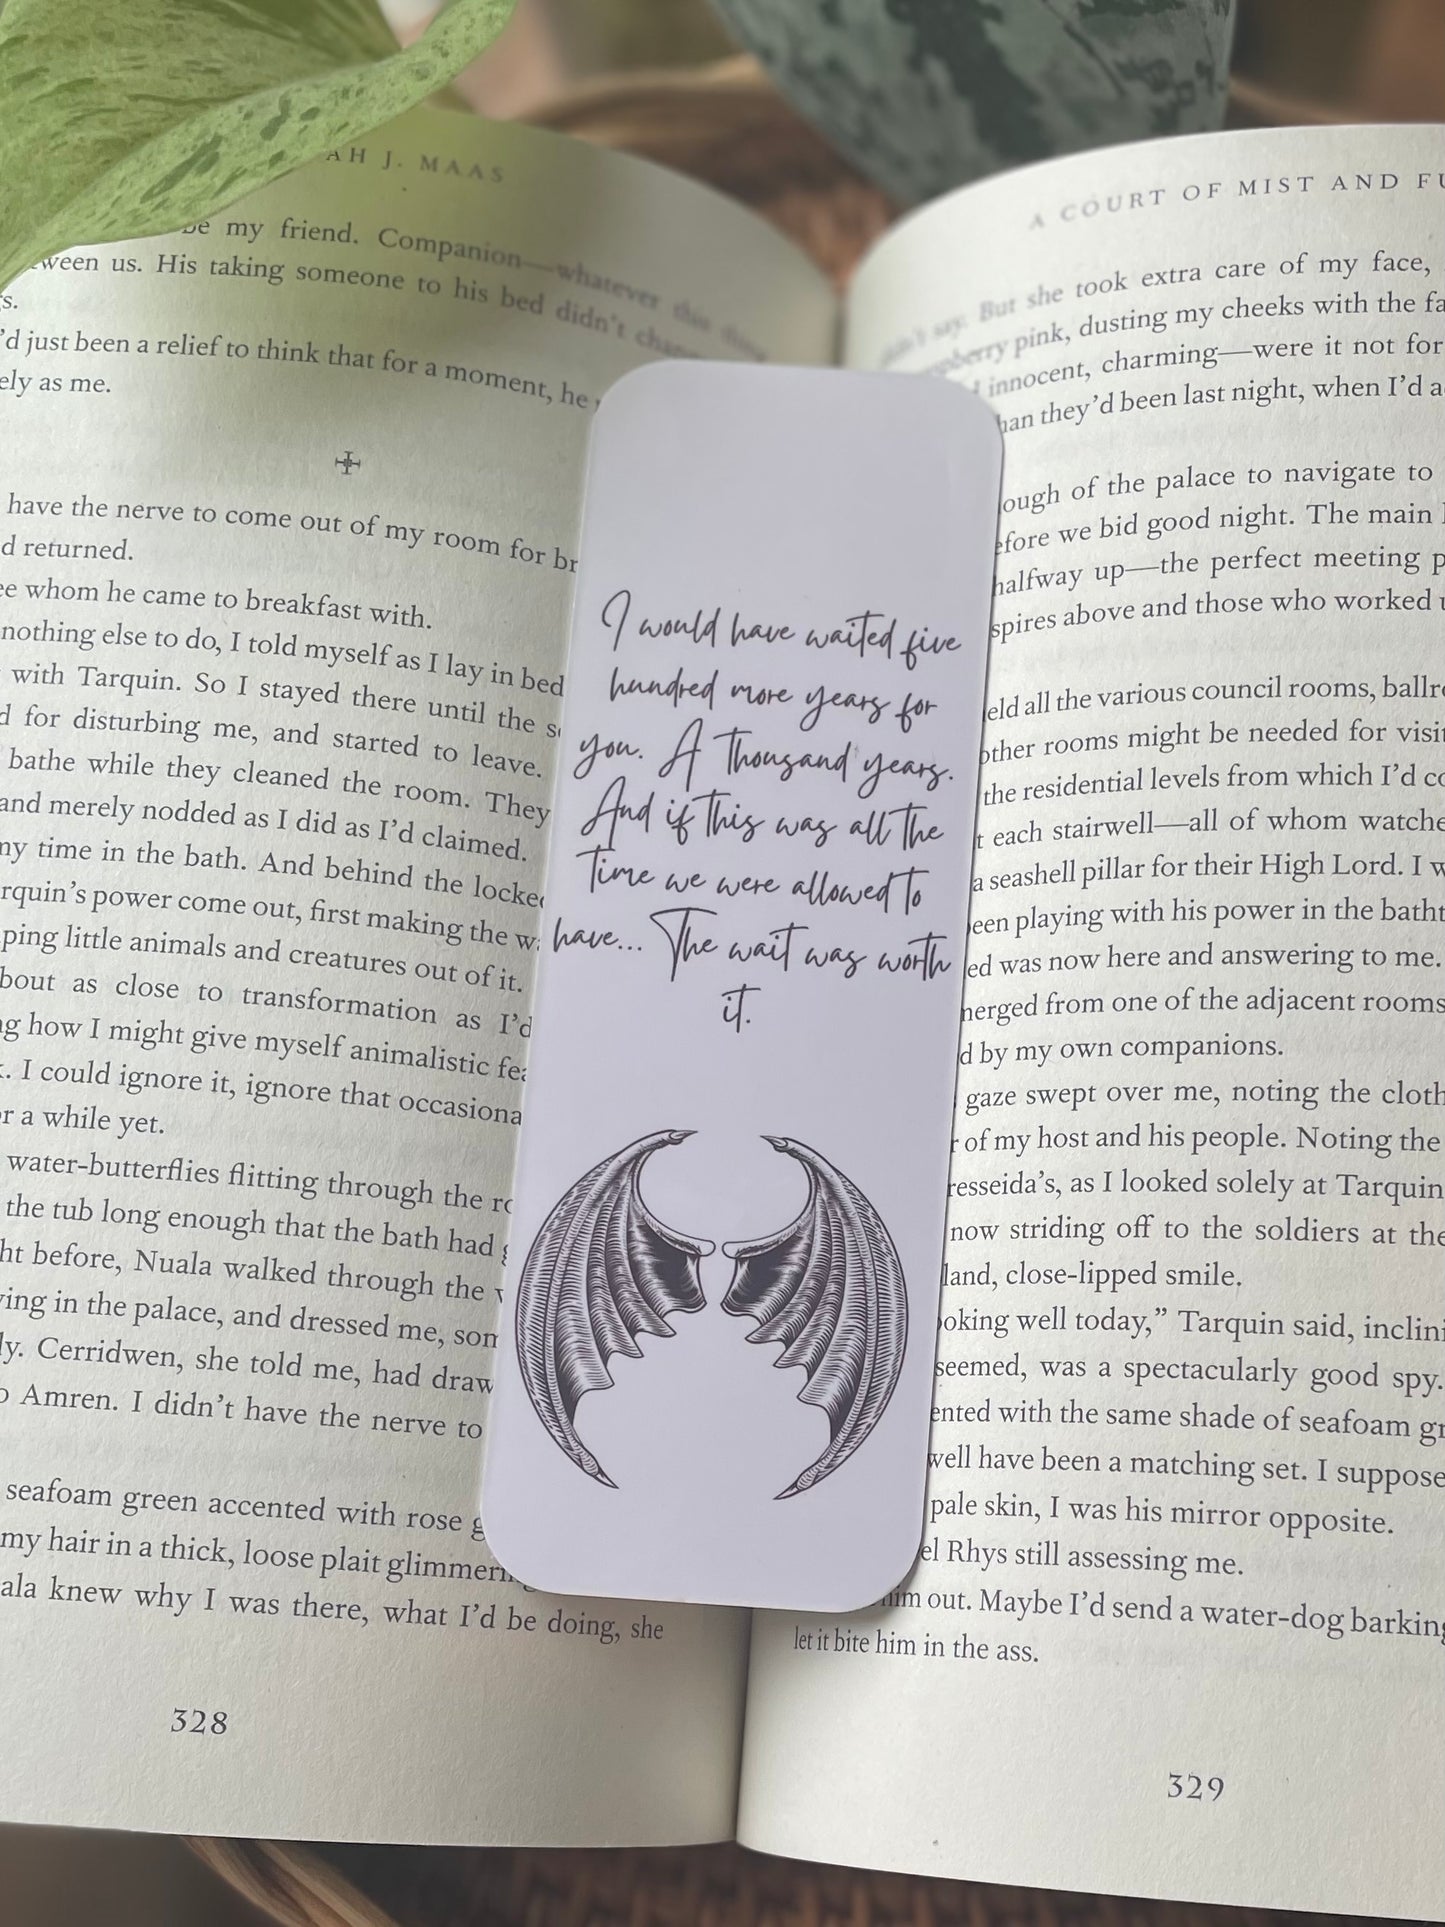 AH J. MAAS
be my friend. Companion—whatever this thing
ween us. His taking someone to his bed didn't
s.
'd just been a relief to think that for a moment, he
ely as me.
have the nerve to come out of my room for
d returned.
ee whom he came to breakfast with.
nothing else to do, I told myself as I lay in bed
with Tarquin. So I stayed there until the
d for disturbing me, and started to leave.
bathe while they cleaned the room. They
and merely nodded as I did as I'd claimed.
my time in the bath. And behind the locked
rquin's power come out, first making the
ping little animals and creatures out of it.
bout as close to transformation as I'd
ng how I might give myself animalistic
k. I could ignore it, ignore that occasiona
or a while yet.
water-butterflies flitting through the
the tub long enough that the bath had
ht before, Nuala walked through the
ying in the palace, and dressed me,
ly. Cerridwen, she told me, had draw
o Amren. I didn't have the nerve to
seafoam green accented with rose
my hair in a thick, loose plait glimmeri
ala knew why I was there, what I'd be doing, she
328
I would have waited five
hundred more years for
you. A thousand years.
And if this was all the
time we were allowed to
have... The wait was worth
it.
A COURT OF MIST AND FU
say. But she took extra care of my face,
pberry pink, dusting my cheeks with the fa
innocent, charming—were it not for
han they'd been last night, when I'd a
ough of the palace to navigate to
efore we bid good night. The main
halfway up—the perfect meeting p
spires above and those who worked
eld all the various council rooms, ballro
other rooms might be needed for visit
the residential levels from which I'd co
t each stairwell—all of whom watche
a seashell pillar for their High Lord. I w
een playing with his power in the batht
ed was now here and answering to me.
merged from one of the adjacent rooms
d by my own companions.
gaze swept over me, noting the cloth
r of my host and his people. Noting the
resseida's, as I looked solely at Tarquin
now striding off to the soldiers at the
land, close-lipped smile.
oking well today,” Tarquin said, inclini
seemed, was a spectacularly good spy.
ented with the same shade of seafoam gr
well have been a matching set. I suppose
pale skin, I was his mirror opposite.
el Rhys still assessing me.
him out. Maybe I'd send a water-dog barking
let it bite him in the ass.
329